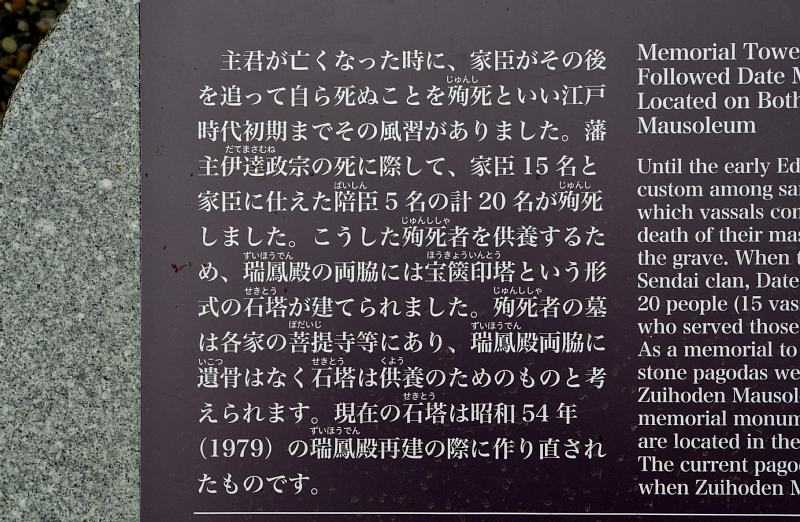 主君が亡くなった時に、家臣がその後
を追って自ら死ぬことを殉死といい江戸
時代初期までその風習がありました。藩
主伊達政宗の死に際して、家臣 15 名と
家臣に仕えた陪臣 5 名の計 20 名が殉死
しました。こうした殉死者を供養するた
め、瑞鳳殿の両脇には宝篋印塔という形
式の石塔が建てられました。殉死者の墓
は各家の菩提寺等にあり、瑞鳳殿両脇に
遺骨はなく石塔は供養のためのものと考
えられます。現在の石塔は昭和 54 年
(1979) の瑞鳳殿再建の際に作り直され
たものです。
じゅんし
だてまさむね
ばいしん
じゅんし
じゅんししゃ
ずいほうでん
ほうきょういんとう
せきとう
じゅんししゃ
ぼだいじ
ずいほうでん
いこつ
せきとう
くよう
せきとう
ずいほうでん
Memorial Towe
Followed Date M
Located on Both
Mausoleum
Until the early Ed
custom among sa
which vassals con
death of their mas
the grave. When t
Sendai clan, Date
20 people (15 vas
who served those
As a memorial to
stone pagodas we
Zuihoden Mausol
memorial monum
are located in the
The current pago
when Zuihoden M